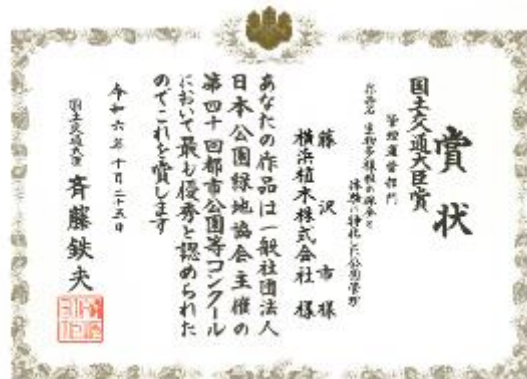 賞状
国土交通大臣賞
管理運営部門
作品名 生物多様性の保全と
体験に特化した公園管理
藤沢市様
横浜植木株式会社様
あなたの作品は一般社団法人
日本公園緑地協会主催の
第四十回都市公園等コンクール
において最も優秀と認められた
のでこれを賞します
令和六年十月二十五日
国土交通大臣 斉藤鉄夫